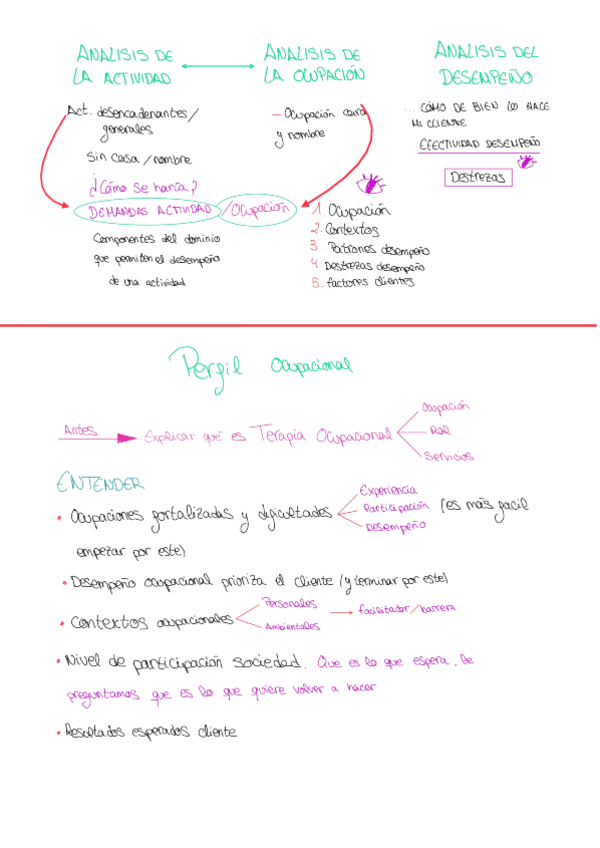 ANALISIS DE
LA ACTIVIDAD
ANALISIS DE
LA OCUPACIÓN
ANALISIS DEL
DESEMPEÑO
Act. desencadenantes/
generales
Sin casa/nombre
¿Cómo se haría?
DEMANDAS ACTIVIDAD /Ocupación
Componentes del dominio
que permiten el desempeño
de una actividad
- Ocupación cara
y nombre
1. Ocupación
2. Contextos
3. Patrones desempeño
4. Destrezas desempeño
5. factores clientes
... CÓMO DE BIEN LO HACE
MI CLIENTE
EFECTIVIDAD DESEMPEÑO
Destrezas
Perfil Ocupacional
Antes
Explicar qué es Terapia Ocupacional
Ocupación
Rol
Servicios
ENTENDER
• Ocupaciones fortalizadas y dificultades
Experiencia
Participación
Desempeño
(es más facil
empezar por este)
• Desempeño ocupacional prioriza el cliente (y terminar por este)
• Contextos ocupacionales
Personales
Ambientales
facilitador/barrera
• Nivel de participación sociedad. Que es lo que espera, le
preguntamos que es lo que quiere volver a hacer
• Resultados esperados cliente